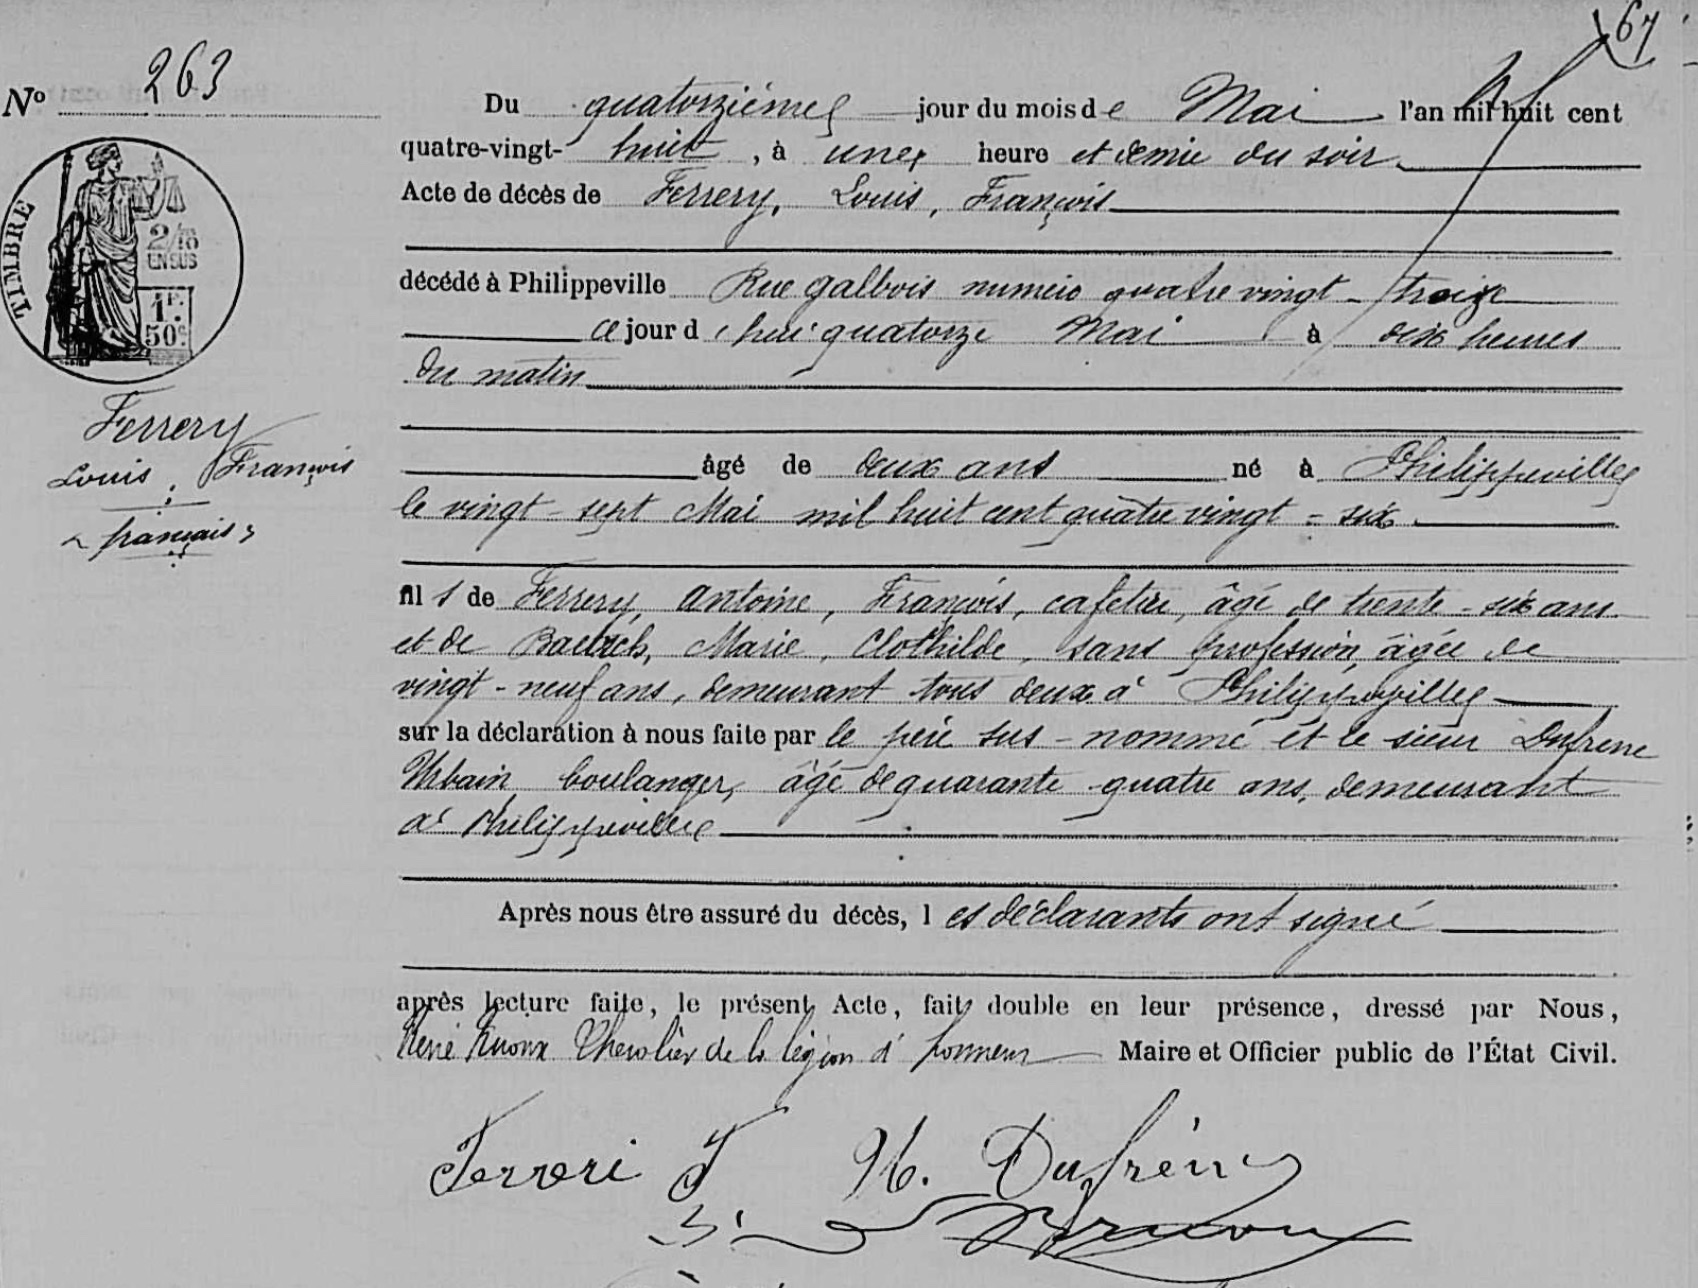 67
N° 263
Du quatorzième jour du mois de Mai l'an mil huit cent
quatre-vingt- huit, à une heure et demie du soir
Acte de décès de Ferrery, Louis, François
décédé à Philippeville Rue Galbois numéro quatre vingt - treize
ce jour d'hui quatorze Mai à dix heures
du matin
âgé de deux ans né à Philippeville
le vingt - sept Mai mil huit cent quatre vingt - six
fils de Ferrery, Antoine, François, cafetier, âgé de trente - six ans
et de Marie, Clothilde, sans profession, âgée de
vingt - neuf ans, demeurant tous deux à Philippeville
sur la déclaration à nous faite par le père sus - nommé et le sieur Dufrene
Urbain boulanger, âgé de quarante - quatre ans, demeurant
à Philippeville
Après nous être assuré du décès, les déclarants ont signé
après lecture faite, le présent Acte, fait double en leur présence, dressé par Nous,
René Ricoux Chevalier de la légion d'honneur Maire et Officier public de l'État Civil.
TIMBRE
2/10 EN SUS
1F. 50c.
Ferrery
Louis, François
français
Ferreri F U. Dufrène